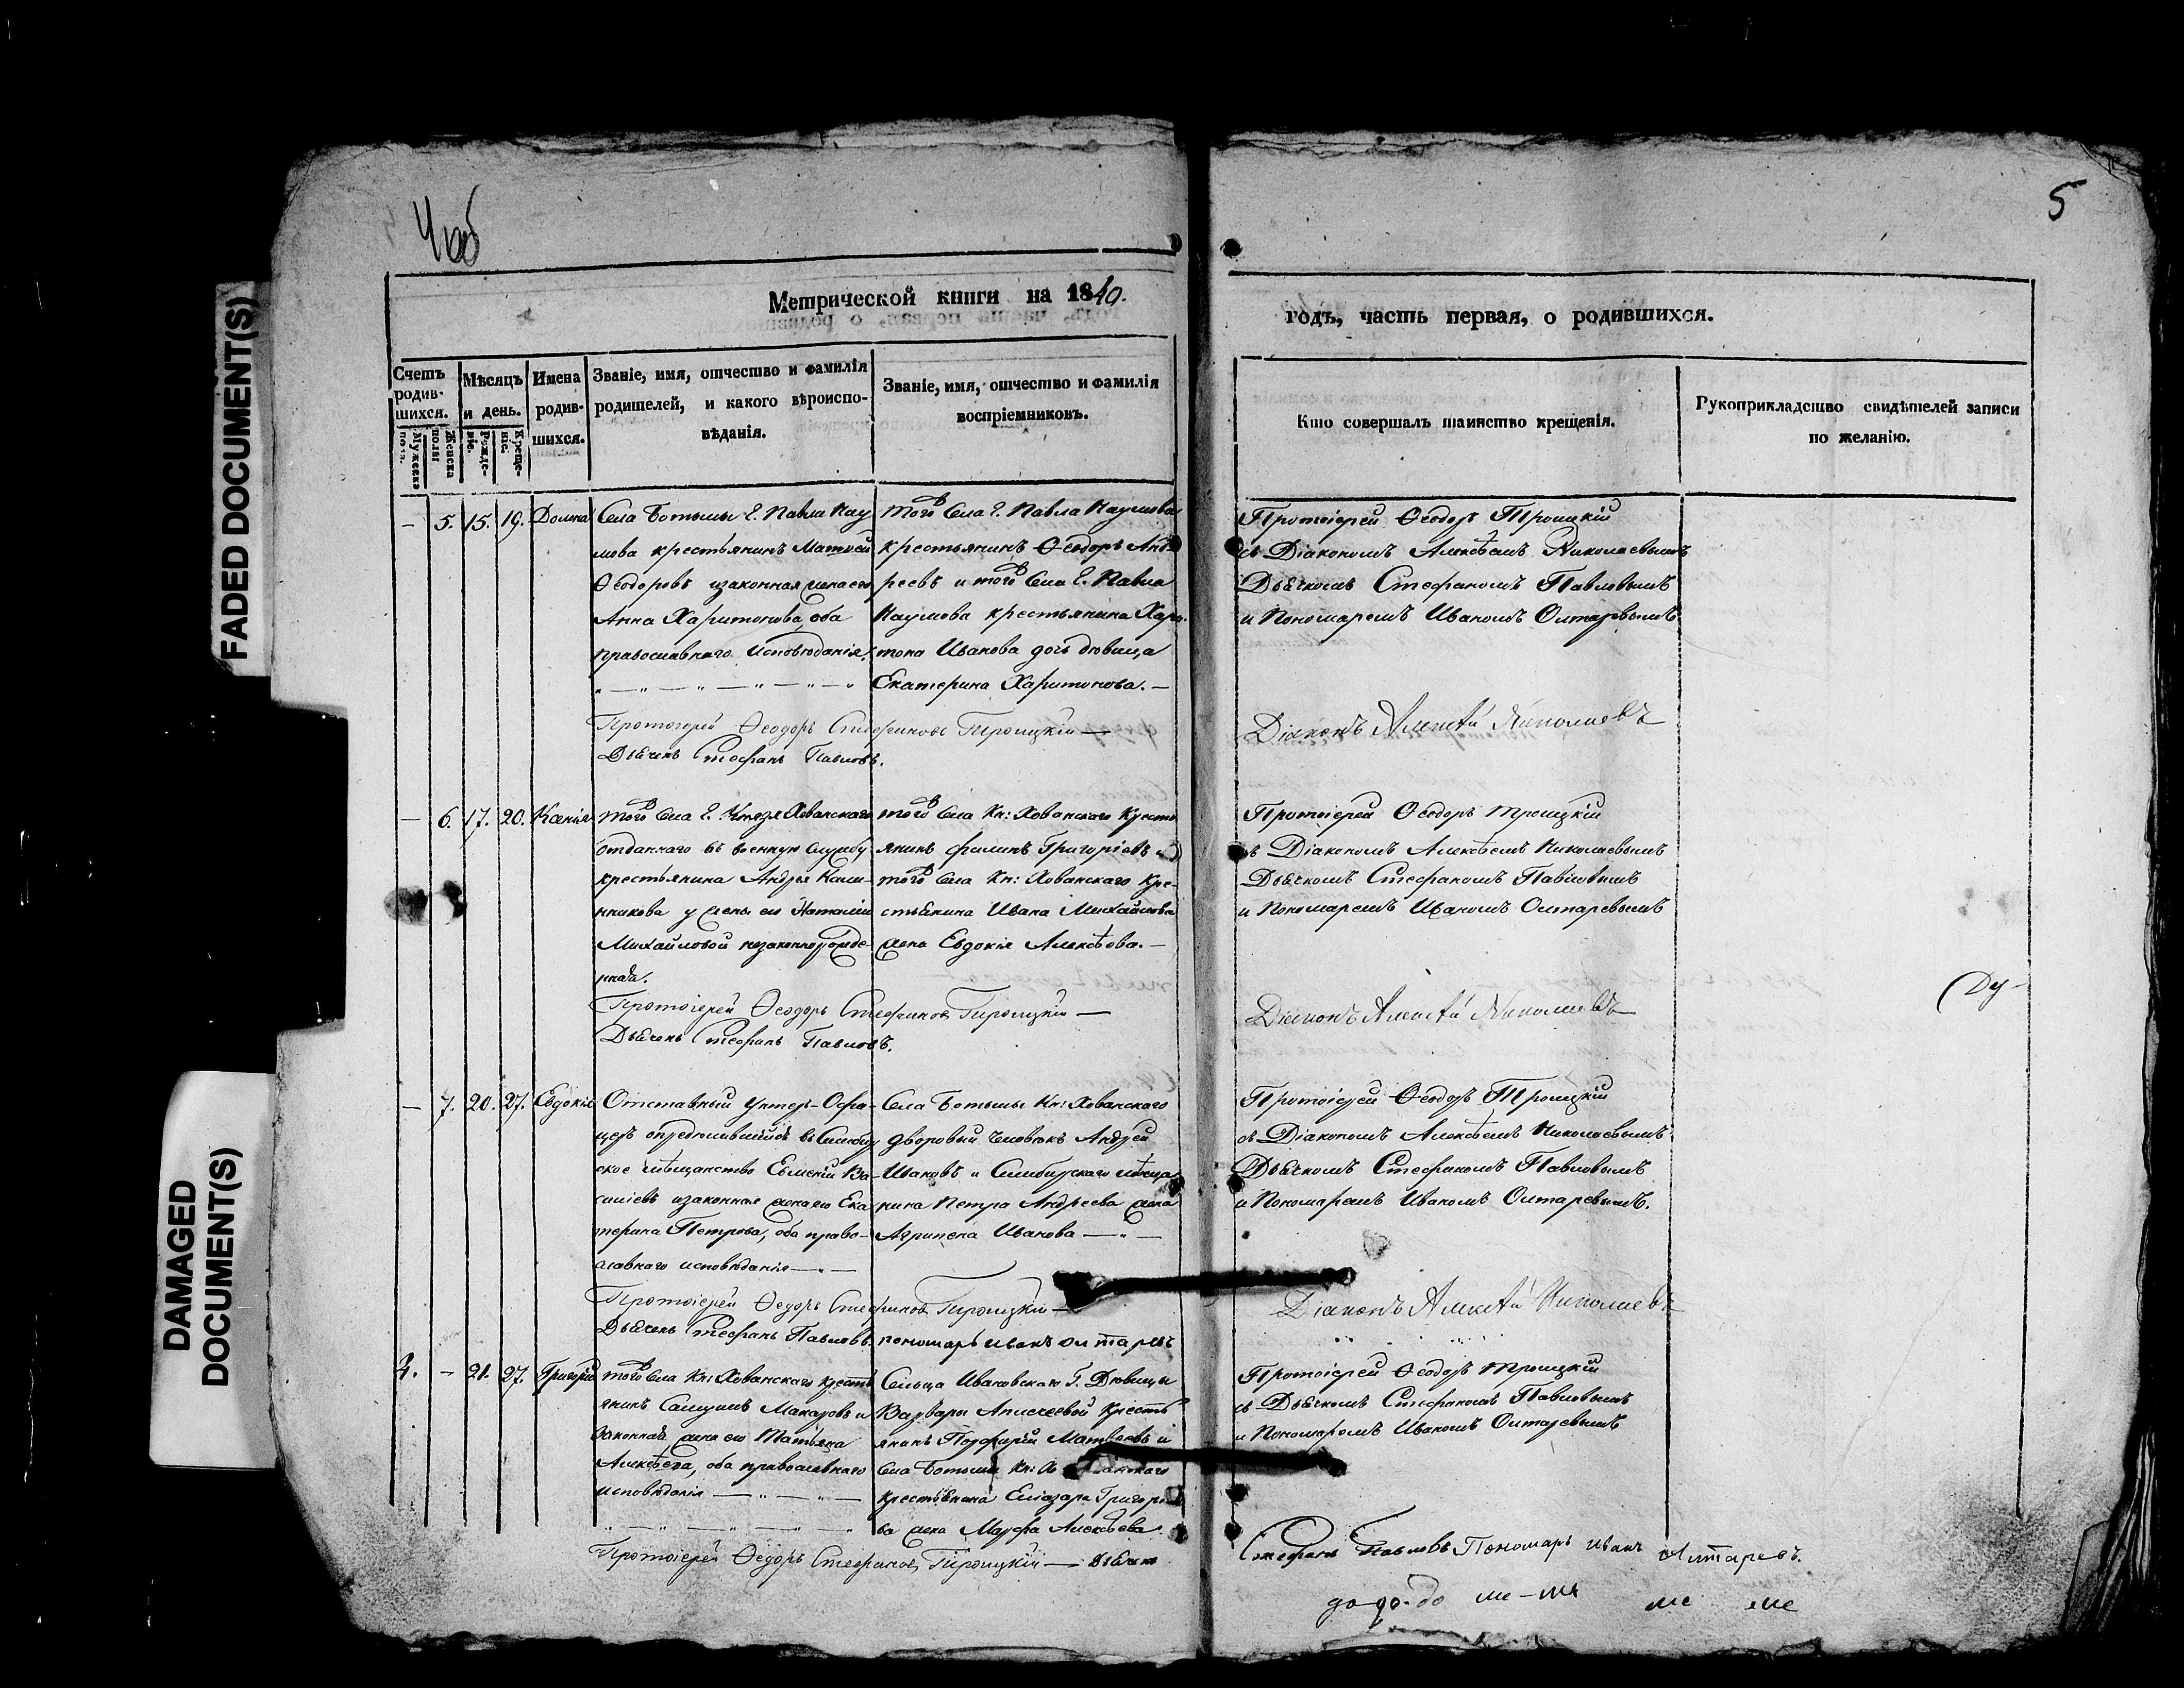 4об
5
Метрической книги на 1840.
годъ, часть первая, о родившихся.
Счетъ родившихся.
Мужеска пола.
Женска пола.
Мѣсяцъ и день.
Рожденіе.
Крещеніе.
Имена родившихся.
Званіе, имя, отчество и фамилія
родителей, и какого вѣроиспо-
вѣданія.
Званіе, имя, отчество и фамилія
воспріемниковъ.
Кто совершалъ таинство крещенія.
Рукоприкладство свидѣтелей записи
по желанію.
— 5. 15. 19. Домна
Села Ботьмы Г. Павла Нау
мова крестьянинъ Матвей
Ѳеодоровъ изаконная жена его
Анна Харитонова, оба
православнаго исповѣданія.
того Села Г. Павла Наумова
крестьянинъ Ѳеодоръ Анд
реевъ и того Села Г. Павла
Наумова крестьянина Хари-
тона Иванова дочь дѣвица
Екатерина Харитонова. —
Протоіерей Ѳеодоръ Троицкій
съ Діакономъ Алексѣемъ Николаевымъ
Дьячкомъ Стефаномъ Павловымъ
и Пономаремъ Иваномъ Олтаревымъ
Протоіерей Ѳеодоръ Стефановъ Троицкій —
Дьячекъ Стефанъ Павловъ.
Діаконъ Алексѣй Николаевъ
— 6. 17. 20. Ксенія
того Села Г. Князя Хованскаго
отданнаго въ военную службу
крестьянина Андрея
у жены его Наталіи
Михайловой незаконнорожде-
нная.
того Села Кн: Хованскаго Кресть
янинъ Филипъ Григорьевъ и
того Села Кн: Хованскаго Кре-
стьянина Ивана Михайлова
жена Евдокія Алексѣева. —
Протоіерей Ѳеодоръ Троицкій
съ Діакономъ Алексѣемъ Николаевымъ
Дьячкомъ Стефаномъ Павловымъ
и Пономаремъ Иваномъ Олтаревымъ
Протоіерей Ѳеодоръ Стефановъ Троицкій —
Дьячекъ Стефанъ Павловъ.
Діаконъ Алексѣй Николаевъ
— 7. 20. 27. Евдокія
Отставный Унтеръ-Офи-
церъ опредѣлившійся въ Симбир
ское мѣщанство Евменій Ва-
силіевъ изаконная жена его Ека
терина Петрова, оба право-
славнаго исповѣданія —
Села Ботьмы Кн: Хованскаго
дворовый человѣкъ Андрей
Ивановъ и Симбирскаго мѣща
нина Петра Андреева жена
Агрипена Иванова —
Протоіерей Ѳеодоръ Троицкій
съ Діакономъ Алексѣемъ Николаевымъ
Дьячкомъ Стефаномъ Павловымъ
и Пономаремъ Иваномъ Олтаревымъ.
Протоіерей Ѳеодоръ Стефановъ Троицкій —
Дьячекъ Стефанъ Павловъ. пономарь иванъ олтаревъ
Діаконъ Алексѣй Николаевъ
— 21. 27. Григорій
того Села Кн: Хованскаго кресть
янинъ Самуилъ Макаровъ и
законная жена его Татьяна
Алексѣева, оба православнаго
исповѣданія —
Сельца Ивановскаго Г. Дѣвицы
Варвары Алексеевой Кресть
янинъ Порфирій Матвеевъ и
Села Ботьмы Кн: Хованскаго
крестьянина Елизара Григорье
ва жена Марфа Алексѣева.
Протоіерей Ѳеодоръ Троицкій
съ Дьячкомъ Стефаномъ Павловымъ
и Пономаремъ Иваномъ Олтаревымъ
Протоіерей Ѳеодоръ Стефановъ Троицкій — Дьячекъ
Стефанъ Павловъ Пономарь иванъ олтаревъ.
FADED DOCUMENT(S)
DAMAGED
DOCUMENT(S)